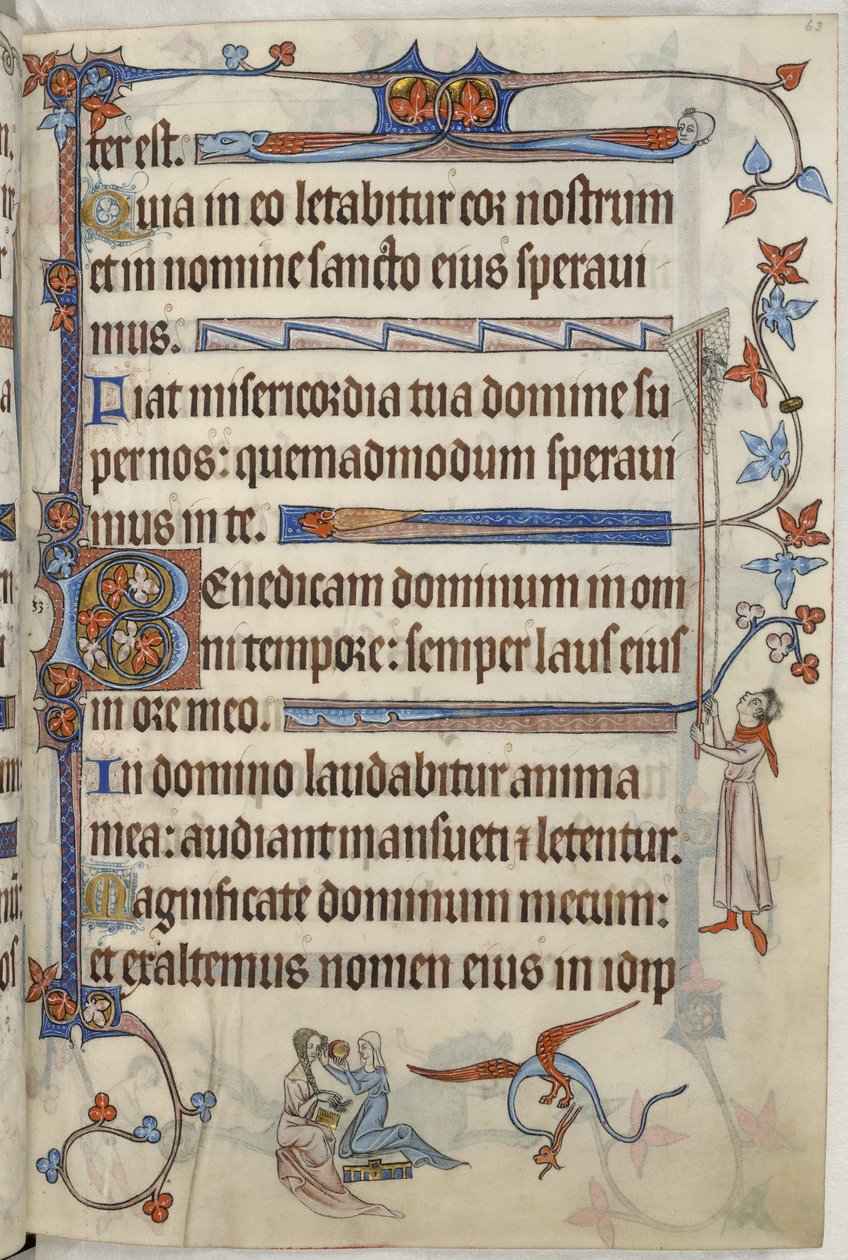 63
ter est.
Quia in eo letabitur cor nostrum
et in nomine sancto eius speraui
mus.
Fiat misericordia tua domine su
per nos: quemadmodum speraui
mus in te.
33
Benedicam dominum in om
ni tempore: semper laus eius
in ore meo.
In domino laudabitur anima
mea: audiant mansueti ⁊ letentur.
Magnificate dominum mecum:
et exaltemus nomen eius in idip